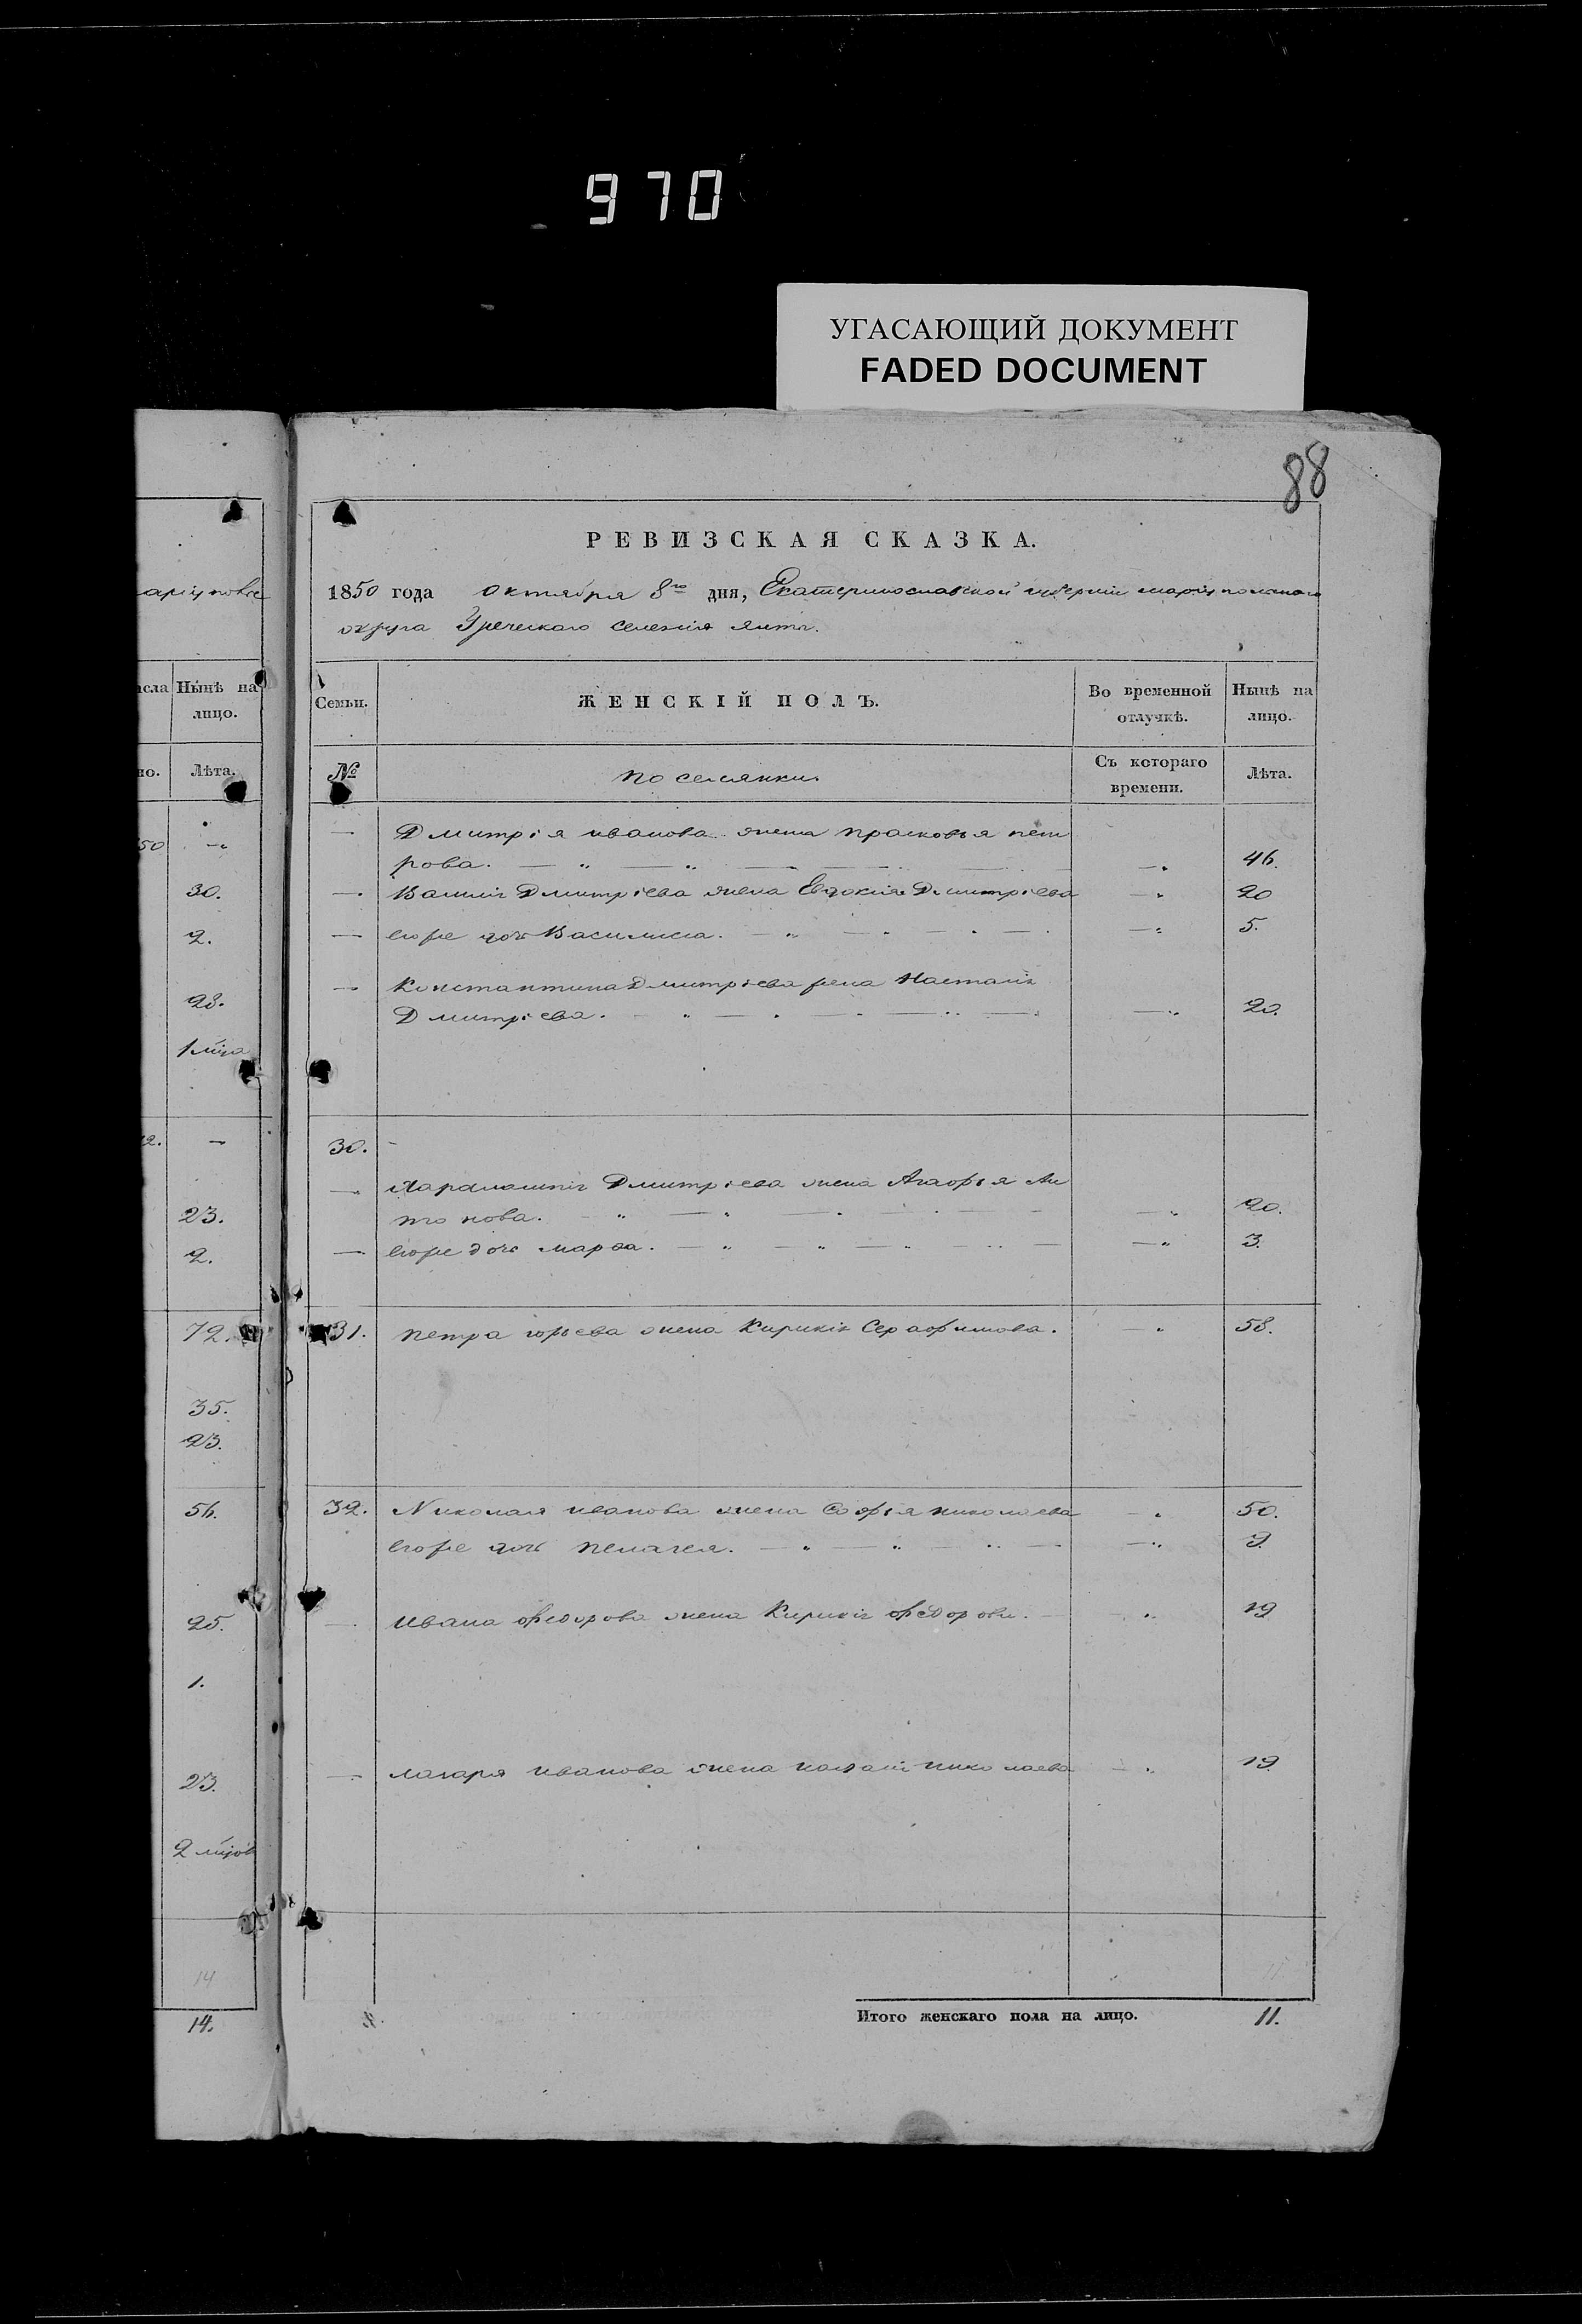 970
УГАСАЮЩИЙ ДОКУМЕНТ
FADED DOCUMENT
88
РЕВИЗСКАЯ СКАЗКА.
1850 года октября 8го дня, Екатеринославской губернии мариупольскаго
округа Греческаго селения Ялты.
Семьи.
ЖЕНСКІЙ ПОЛЪ.
Во временной отлучкѣ.
Нынѣ на лицо.
№
поселянки
Съ котораго времени.
Лѣта.
— Дмитрія иванова жена прасковья пет
рова. — 46.
— Дмитріева жена Евдокия Дмитріева — 20
— егоже дочь Василиса. — 5.
— Константина Дмитріева жена
Дмитріева. — 20.
30. -
— Дмитріева жена Агафія Ан
тонова. — 20.
— егоже дочь марфа. — 3.
31. петра юрьева жена Кирикія Серафимова. — 58.
32. Николая иванова жена Софія николаева — 50.
егоже дочь пелагея. — 9.
— Ивана федорова жена Кирикія федорова. — 19
— лазаря иванова жена николаева — 19.
Итого женскаго пола на лицо. 11.
Нынѣ на
лицо.
но. Лѣта.
50 —
30.
2.
28.
1 мца
2. —
23.
2.
72.
35.
23.
56.
25.
1.
23.
14
14.